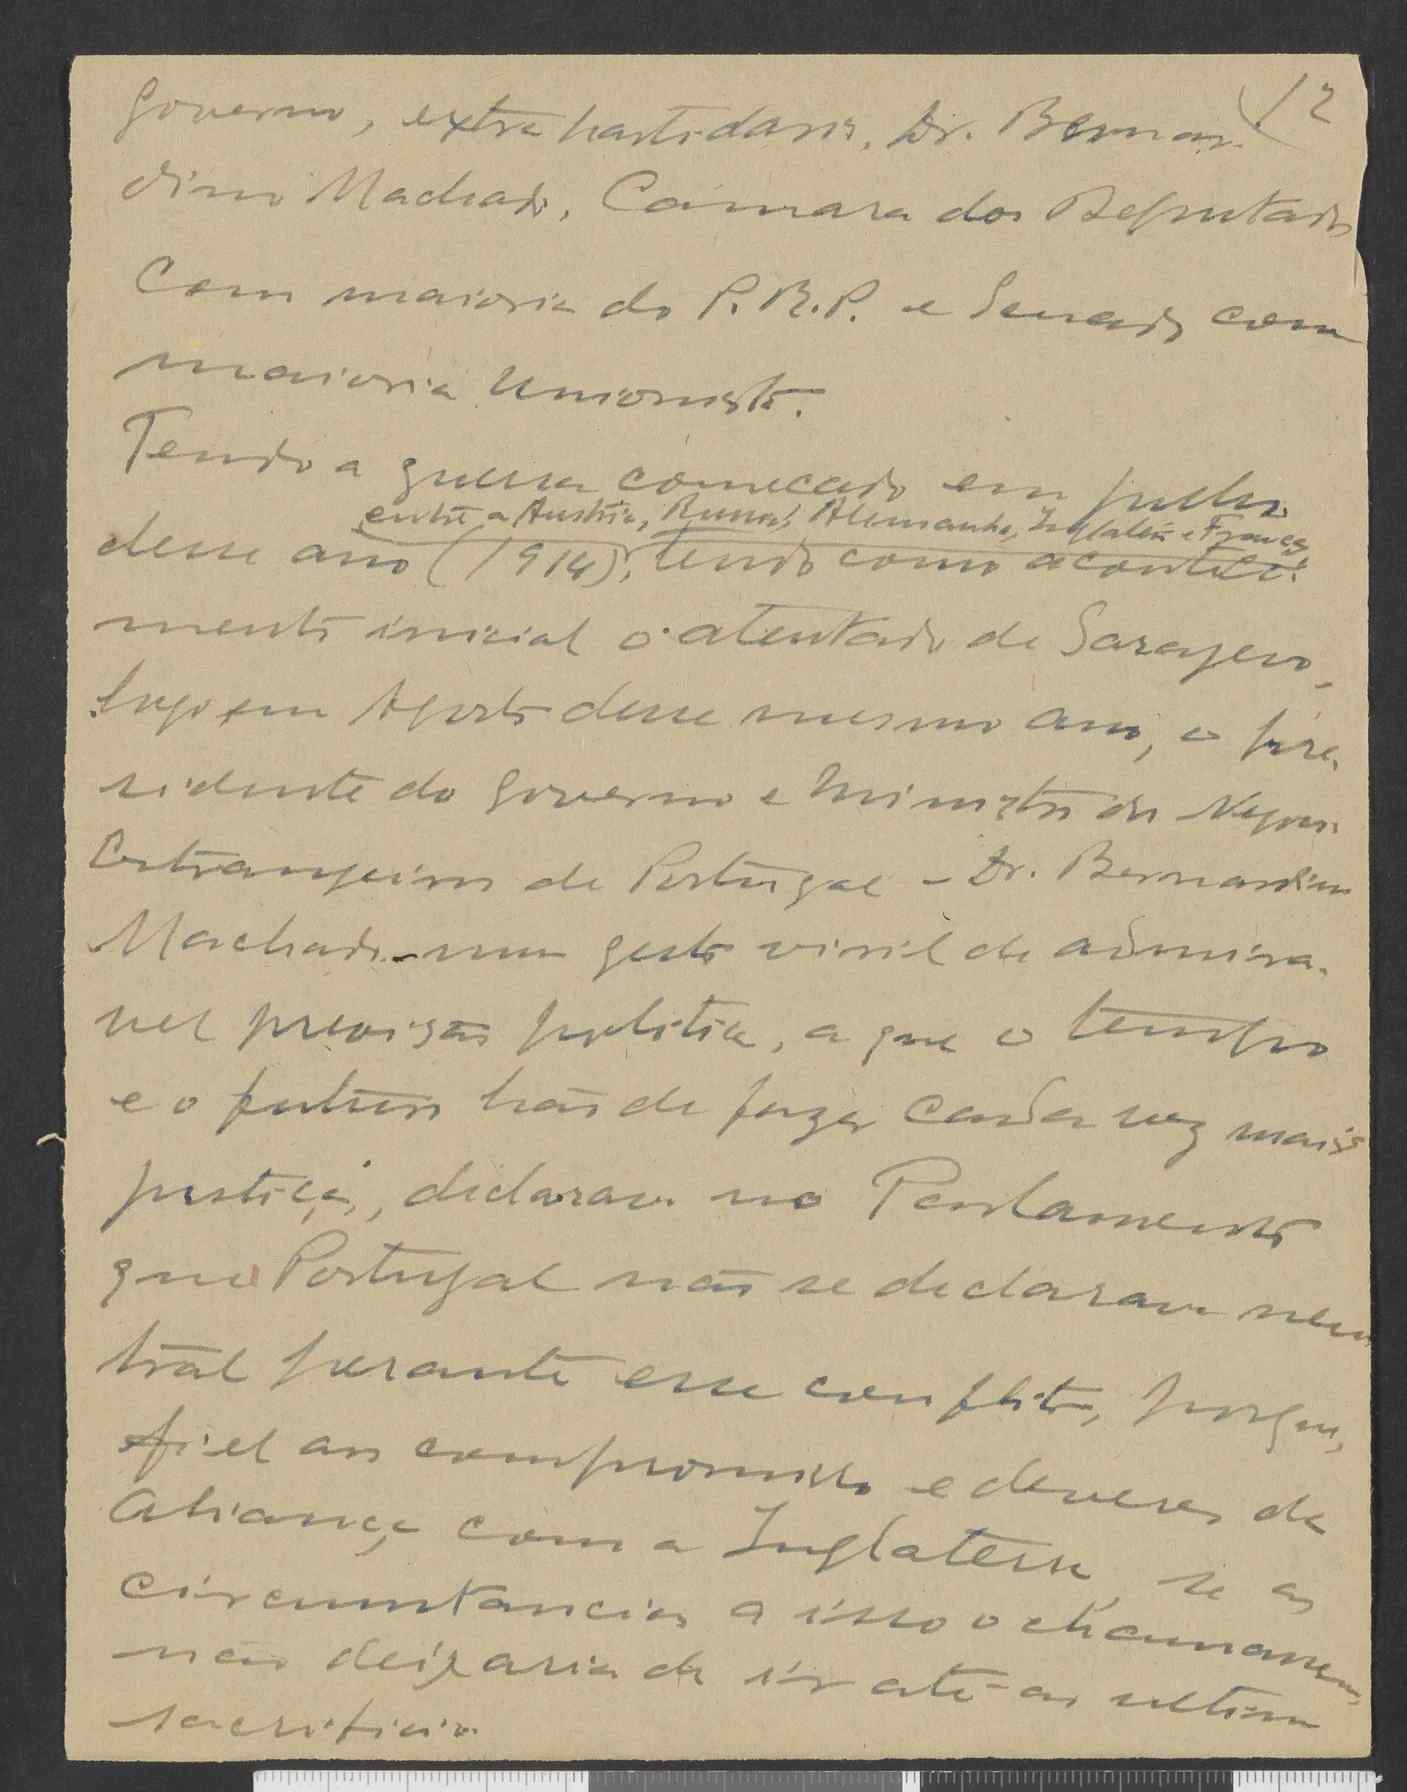 12
Governo, extra partidario, Dr. Bernar-
dino Machado, Camara dos Deputados
com maioria do P.R.P. e Senado com
maioria unionista.
Tendo a guerra começado em julho
entre a Austria, Russia, Alemanha, Inglaterra e França,
desse ano (1914), tendo como aconteci-
mento inicial o atentado de Sarajevo,
logo em Agosto desse mesmo ano, o pre-
sidente do Governo e Ministro dos Negocios
Estrangeiros de Portugal - Dr. Bernardino
Machado - num gesto viril de admira-
vel previsão politica, a que o tempo
e o futuro hão de fazer cada vez mais
justiça, declarava no Parlamento
que Portugal não se declarava neu-
tral perante esse conflito, porque,
fiel aos compromissos e deveres da
Aliança com a Inglaterra, se as
circumstancias a isso o chamassem,
não deixaria de ir até ao ultimo
sacrificio.